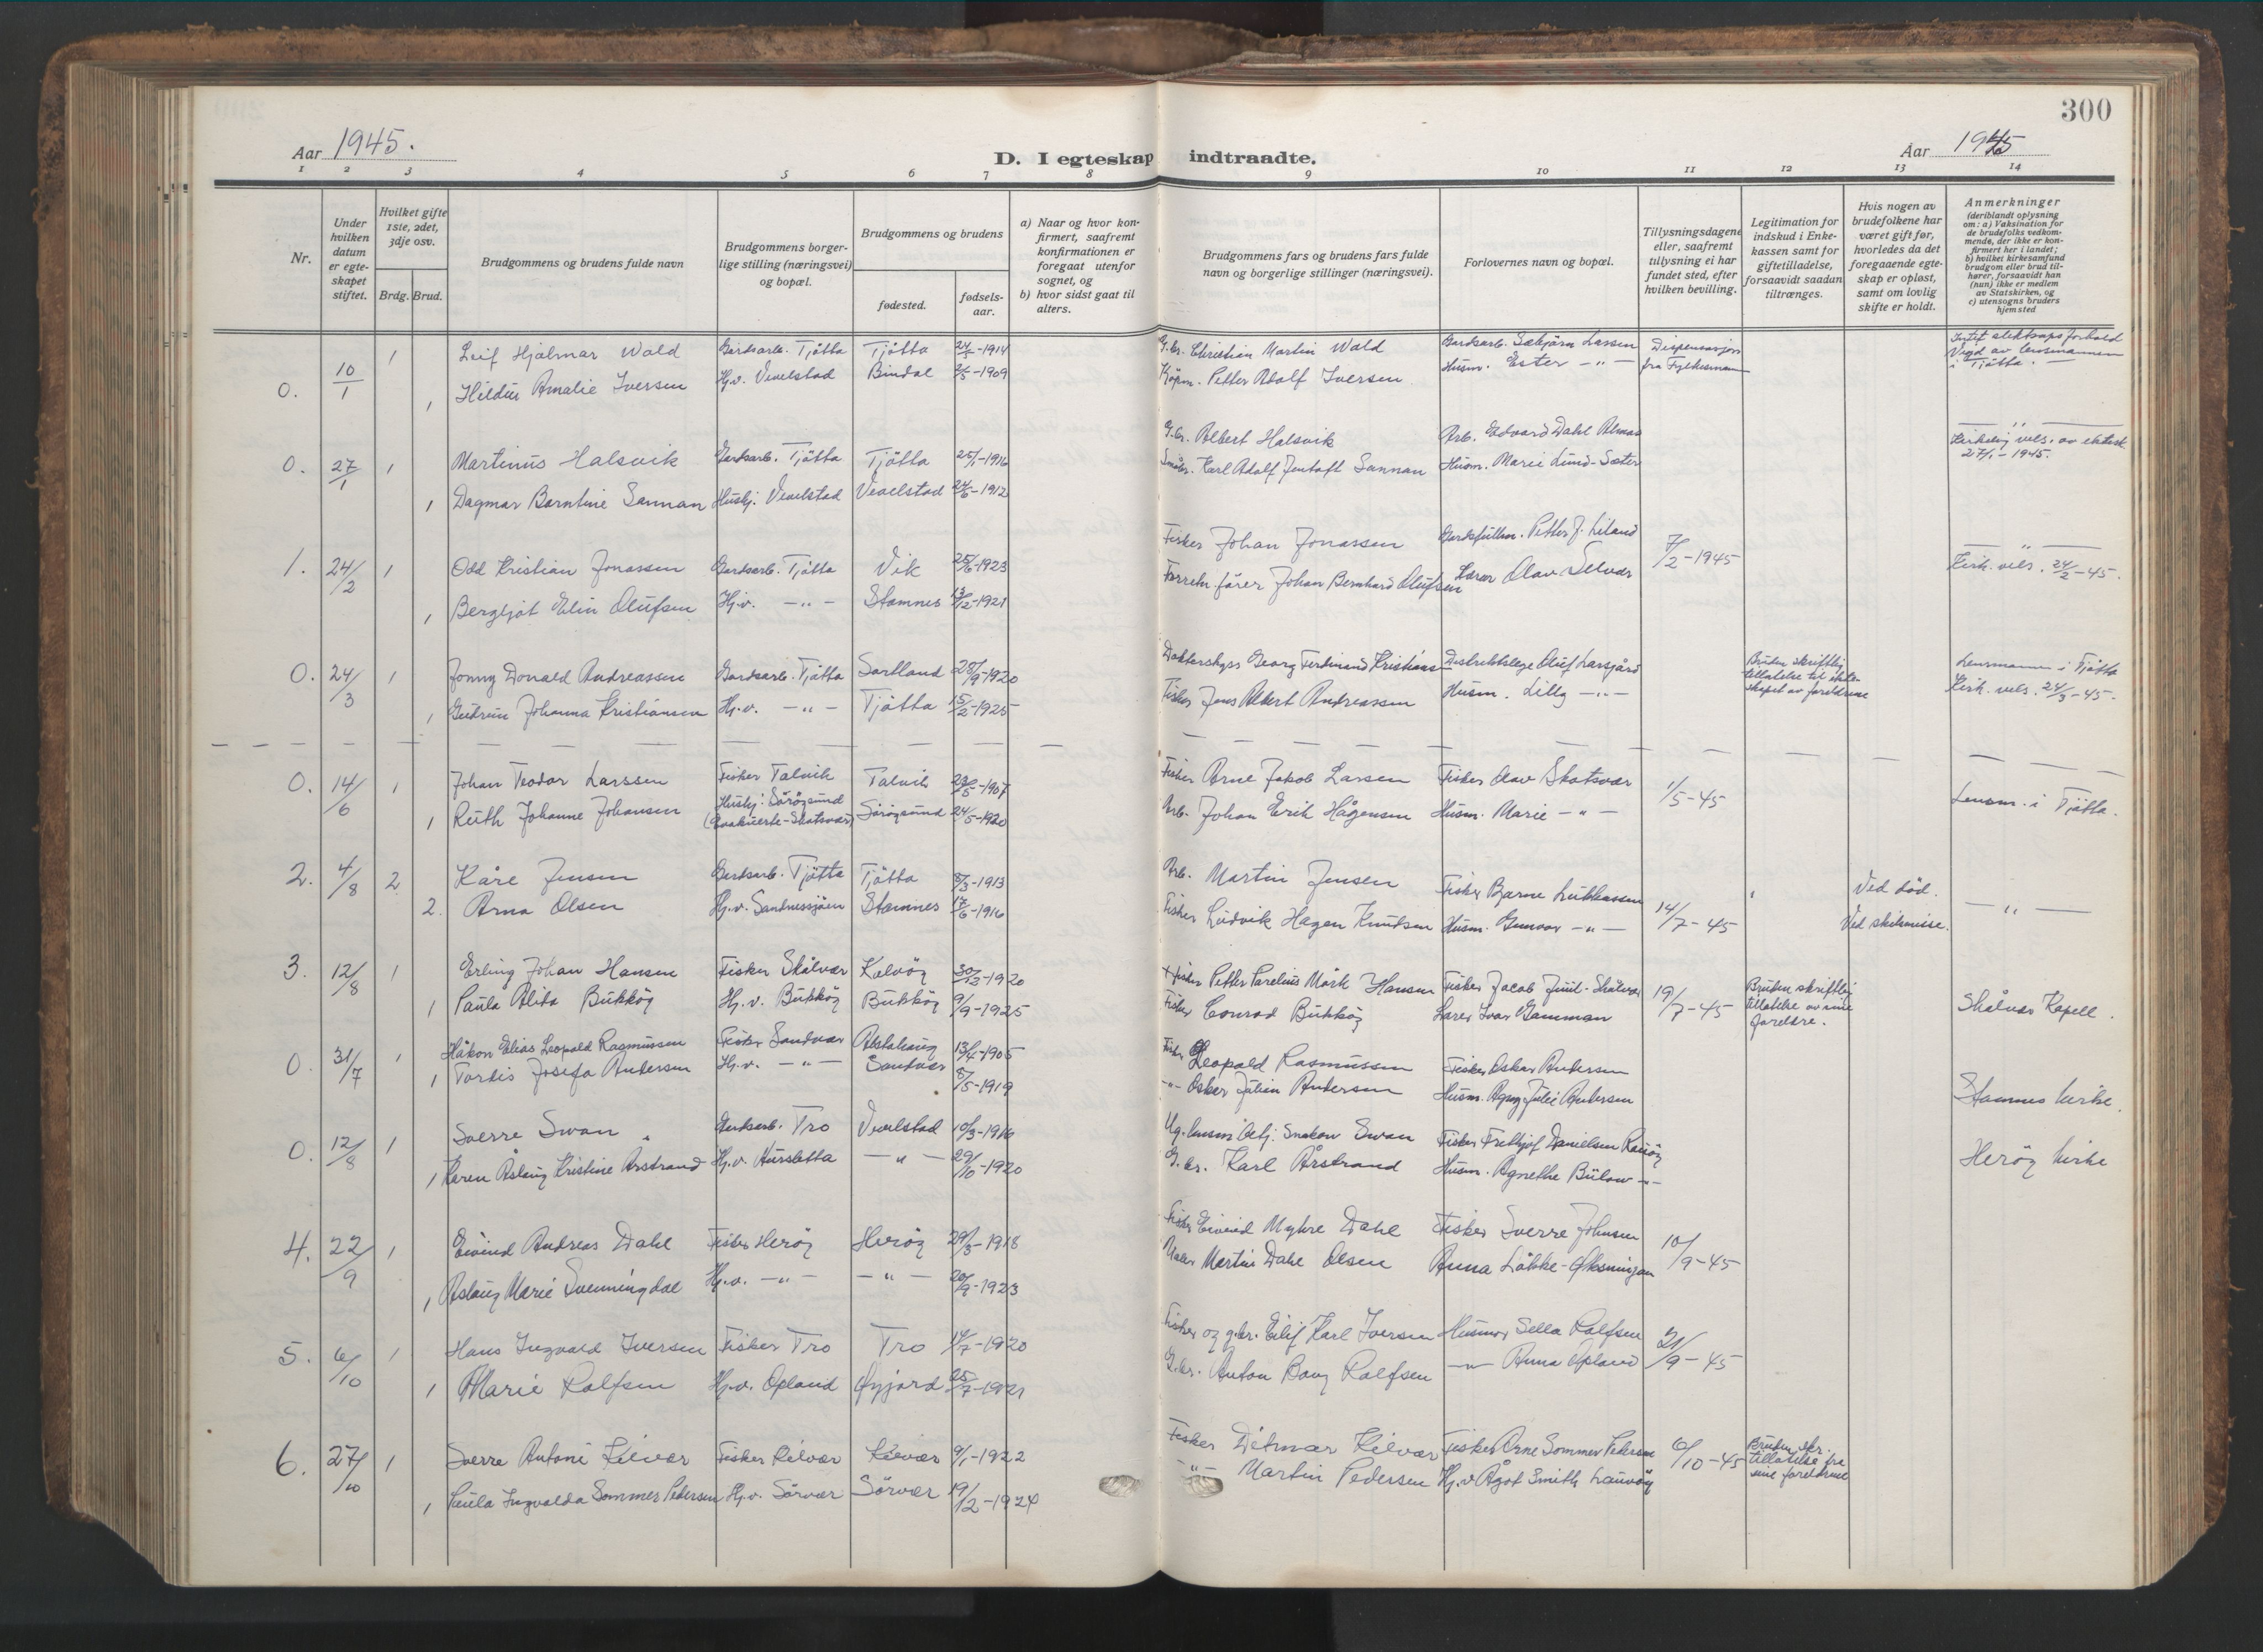 300
Aar 1945.
D. I egteskap indtraadte.
Aar 1945
1 2 3 4 5 6 7 8 9 10 11 12 13 14
Nr.
Under hvilken datum er egteskapet stiftet.
Hvilket gifte 1ste, 2det, 3dje osv.
Brdg. Brud.
Brudgommens og brudens fulde navn
Brudgommens borgerlige stilling (næringsvei) og bopæl.
Brudgommens og brudens
fødested.
fødselsaar.
a) Naar og hvor konfirmert, saafremt konfirmationen er foregaat utenfor sognet, og
b) hvor sidst gaat til alters.
Brudgommens fars og brudens fars fulde navn og borgerlige stillinger (næringsvei).
Forlovernes navn og bopæl.
Tillysningsdagene eller, saafremt tillysning ei har fundet sted, efter hvilken bevilling.
Legitimation for indskud i Enkekassen samt for giftetilladelse, forsaavidt saadan tiltrænges.
Hvis nogen av brudefolkene har været gift før, hvorledes da det foregaaende egteskap er opløst, samt om lovlig skifte er holdt.
Anmerkninger
(deriblandt oplysning om: a) Vaksination for de brudefolks vedkommende, der ikke er konfirmert her i landet; b) hvilket kirkesamfund brudgom eller brud tilhører, forsaavidt han (hun) ikke er medlem av Statskirken, og c) utensogns bruders hjemsted
0. 10/1 1 Leif Hjalmar Wold Gårdsarb. Tjøtta Tjøtta 24/5-1914 G.br. Christian Martin Wold Gardsarb. Sæbjørn Lassen Dispensasjon
1 Hildur Amalie Iversen Hj.v. Vevelstad Bindal 2/5-1909 Kjøpm. Petter Adolf Iversen Husm. Ester -"- fra Fylkesmann
Vigd av lensmannen i Tjøtta.
0. 27/1 1 Martinus Halsvik Gardsarb. Tjøtta Tjøtta 25/1-1916 G.br. Albert Halsvik Arb. Edvard Dahl Almås
1 Dagmar Berntine Sannan Hushj. Vevelstad Vevelstad 24/6-1912 Småbr. Karl Adolf Jentoft Sannan Husm. Marie Lund-Sæter
-"- Kirkelig vels. av ektesk. 27/1-1945.
1. 24/2 1 Odd Kristian Jonassen Gardsarb. Tjøtta Vik 25/6-1923 Fisker Johan Jonassen Gardsfullm. Petter J. Liland 7/2-1945
1 Bergljot Elin Olufsen Hj.v. -"- Stamnes 13/12-1921 Forretn.fører Johan Bernhard Olufsen Lærer Olav Selvær
-"- Kirk. vels. 24/2-45.
0. 24/3 1 Jonny Donald Andreassen Gardsarb. Tjøtta Sortland 28/9-1920 Doktorskyss Georg Ferdinand Kristians- Distriktslege Oluf Larsgård
1 Gudrun Johanna Kristiansen Hj.v. -"- Tjøtta 15/2-1925 Fisker Jens Albert Andreassen Husm. Lilly -"-
Bruden skriftlig tillatelse til ekteskapet av foreldrene
Lensmannen i Tjøtta
Kirk. vels. 24/3-45.
0. 14/6 1 Johan Teodor Larssen Fisker Talvik Talvik 23/5-1907 Fisker Arne Jakob Larsen Fisker Olav Skotsvær 1/5-45
1 Ruth Johanne Johansen Hushj. Sørøysund (Evakuerte-Skotsvær) Sørøysund 24/5-1920 Arb. Johan Erik Hågensen Husm. Marie -"-
Lensm. i Tjøtta.
2. 4/8 2 Kåre Jensen Gardsarb. Tjøtta Tjøtta 8/3-1913 Arb. Martin Jensen Fisker Bjarne Lukkassen 14/7-45 Ved død.
2. Arna Olsen Hj.v. Sandnessjøen Stamnes 17/6-1916 Fisker Ludvik Hagen Knudsen Husm. Gunvor -"- Ved skilsmisse.
-"-
3. 12/8 1 Erling Johan Hansen Fisker Skålvær Kalvøy 30/12-1920 + Fisker Petter Parelius Mørk Hansen Fisker Jacob Juul-Skålvær 19/7-45
1 Paula Alida Bukkøy Hj.v. Bukkøy Bukkøy 9/9-1925 Fisker Conrad Bukkøy Lærer Ivar Gamman
Bruden skriftlig tillatelse av sine foreldre.
Skålvær Kapell.
0. 31/7 1 Håkon Elias Leopold Rasmussen Fisker Sandvær Alstahaug 13/4-1905 Fisker Leopold Rasmussen Fisker Oskar Andersen
1 Tordis Josefa Andersen Hj.v. -"- Sandvær 8/5-1919 -"- Oskar Julius Andersen Husm. Agny Julie Andersen
Stamnes kirke.
0. 12/8 1 Sverre Swan Gardsarb. Tro Vevelstad 10/3-1916 Swan Fisker Fridtjof Danielsen Rånøy
1 Karen Åslaug Kristine Årstrand Hj.v. Husletta -"- 29/10-1920 G.br. Karl Årstrand Husm. Agnethe Bülow -"-
Herøy kirke
4. 22/9 1 Eivind Andreas Dahl Fisker Herøy Herøy 29/3-1918 Fisker Eivind Myhre Dahl Fisker Sverre Johnsen 10/9-45
1 Aslaug Marie Svenningdal Hj.v. -"- -"- 20/9-1923 Maler Martin Dahl Olsen Anna Løkke-Øksningan
5. 6/10 1 Hans Ingvald Iversen Fisker Tro Tro 14/7-1920 Fisker og g.br. Eilif Karl Iversen Husmor Sella Rolfsen 21/9-45
1 Marie Rolfsen Hj.v. Opland Øyjord 25/7-1921 G.br. Anton Bang Rolfsen -"- Anna Opland
6. 27/10 1 Sverre Antoni Kilvær Fisker Kilvær Kilvær 9/1-1922 Fisker Ditmar Kilvær Fisker Arne Sommer Pedersen 6/10-45
1 Paula Ingvalda Sommer Pedersen Hj.v. Sørvær Sørvær 19/12-1924 -"- Martin Pedersen Hj.v. Ågot Smith Launøy
Bruden skr. tillatelse fra sine foreldrene